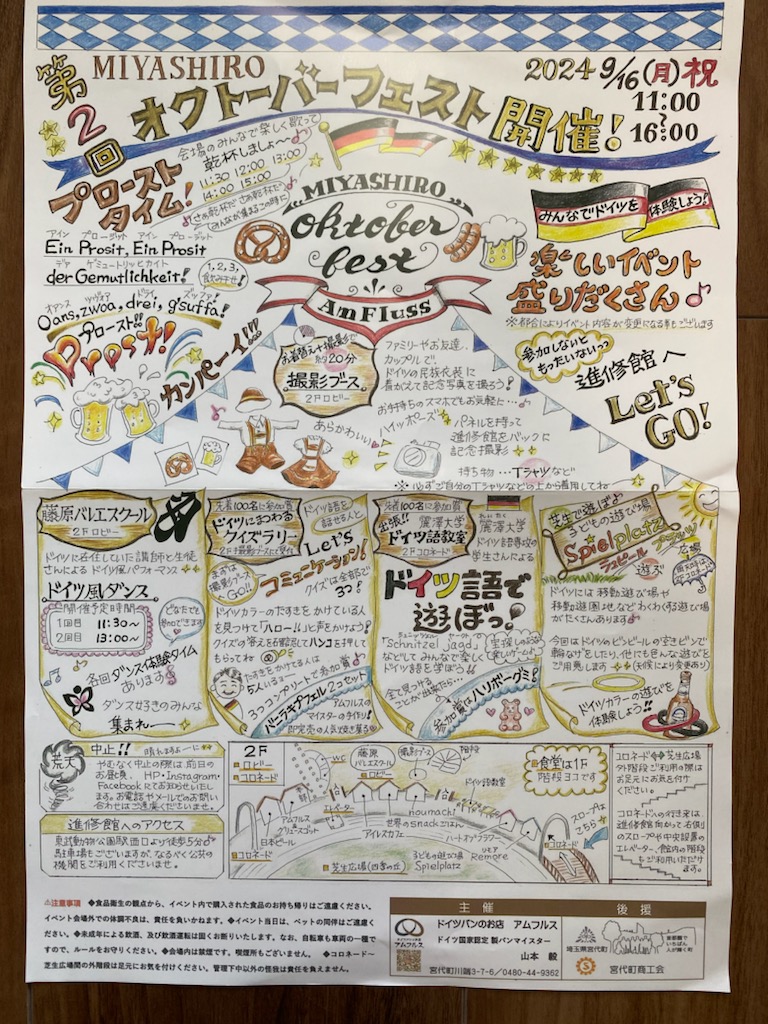 第2回
MIYASHIRO
オクトーバーフェスト開催!
2024 9/16(月)祝
11:00
~
16:00
プロースト
タイム!
会場のみんなで楽しく歌って
乾杯しましょ〜♪
11:30 12:00 13:00
14:00 15:00
アイン プロージット アイン プローデット
Ein Prosit, Ein Prosit
デァ ゲミュートリッヒカイト
der Gemutlichkeit!
オァンス ツヴォア ドライ ズッファ!
Oans, zwoa, drei, g'suffa!
プロースト!!
Prost!
カンパーイ!!!
MIYASHIRO
oktober
fest
Am Fluss
みんなでドイツを体験しよう!
楽しいイベント
盛りだくさん♪
※都合によりイベント内容が変更になる事もございます
参加しないと
もったいないっっ
進修館へ
Let's
GO!
お着替え+撮影で
約20分
撮影ブース
2Fロビー
ファミリーやお友達、
カップルで、
ドイツの民族衣装に
着がえて記念写真を撮ろう!
お手持ちのスマホでもお気軽に…♪
あらかわいい
ハイッポーズ
パネルを持って
進修館をバックに
記念撮影
持ち物…Tシャツなど
※必ずご自分のTシャツなどの上から着用してね
藤原バレエスクール
2Fロビー
ドイツに在住していた講師と生徒
さんによるドイツ風パフォーマンス
ドイツ風ダンス
開催予定時間
1回目 11:30〜
2回目 13:00〜
どなたでも
参加できます
各回ダンス体験タイム
あります
ダンス好きのみんな
集まれ―
先着100名に参加賞
ドイツにまつわる
クイズラリー
2F撮影ブースにて受付
ドイツ語を
話せる人と
Let's
コミュニケーション!
まずは
撮影ブースへ
Go!!
クイズは全部で
3つ!
ドイツカラーのたすきをかけている人
を見つけて「ハロー!」と声をかけよう!
クイズの答えを石窟認してハンコを押して
もらってね
たすきをかける人は
5人いるョー
3つコンプリートで参加賞
バーラキプフェル2コセット
アムフルスの
マイスターの手作り!
即完売の人気焼き菓子
先着100名に参加賞
出張!! 麗澤大学
ドイツ語教室
2Fコロネード
れいたく
麗澤大学
ドイツ語専攻の
学生さんによる
ドイツ語で
遊ぼっ!
"schnitzel jagd"
などしてみんなで楽しく
ドイツ語を学ぼう!!
宝探しのような
楽しいゲーム
全て見つける
ことが出来たら…
参加賞はハリボーグミ!
芝生で遊ぼ♪
子どもの遊び場
Spielplatz
広場
遊ぶ
ドイツには移動遊び場や
移動遊園地などわくわくする遊び場
がたくさんあります
今回はドイツのビンビールの空きビンで
輪なげをしたり、他にも色んな遊びを
ご用意します(天候により変更あり)
ドイツカラーの遊びを
体験しよう!!
荒天
中止!! 晴れますよーに
やむなく中止の際は前日の
お昼頃、HP・Instagram・
Facebookにてお知らせいたし
ます。お電話やメールでのお問い
合わせはご遠慮くださいませ。
進修館へのアクセス
東武動物公園駅西口より徒歩5分
駐車場もございますが、なるべく公共の
機関をご利用くださいませ。
2F
ロビー
コロネード
WC
藤原
バレエスクール
ロビー
撮影ブース
階段
ドイツ語教室
食堂は1F
階段ヨコです
スロープは
こちら
アムフルス
グリューズゴット
日本ビール
エレベーター
アイレスカフェ
noumachi
世界のsnackごはん
ハートオブフラワー
リモア
Remore
コロネード
芝生広場(四季の丘)
子どもの遊び場
Spielplatz
コロネード
コロネード⇔芝生広場
外階段ご利用の際は
お足元にお気を付け
ください。
コロネードへの行き方は、
進修館向かって右側
のスロープや中央設置の
エレベーター、館内の階段
もご利用いただけ
ます。
⚠注意事項 ◆食品衛生の観点から、イベント内で購入された食品のお持ち帰りはご遠慮ください。
イベント会場外での体調不良は、責任を負いかねます。◆イベント当日は、ペットの同伴はご遠慮く
ださい。◆未成年による飲酒、及び飲酒運転は固くお断りいたします。なお、自転車も車両の一種で
すので、ルールをお守りください。◆会場内は禁煙です。喫煙所もございません。◆コロネード〜
芝生広場間の外階段は足元にお気を付けください。管理下中以外の怪我は責任を負えません。
主催
アムフルス
ドイツパンのお店 アムフルス
ドイツ国家認定 製パンマイスター
山本 毅
宮代町川端3-7-6/0480-44-9362
後援
埼玉県宮代町
宮代町商工会